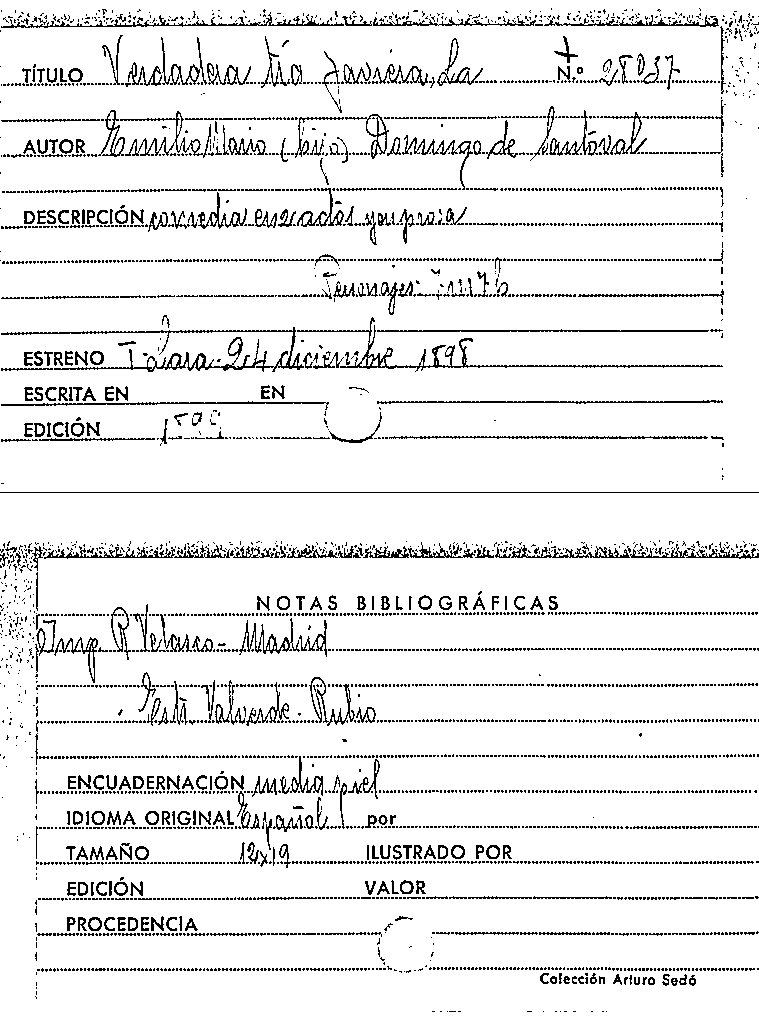 TÍTULO Verdadera tía Javiera, La N.º 28037
AUTOR Emilio Mario (hijo) Domingo de Santoval
DESCRIPCIÓN comedia en 2 actos y en prosa
Personajes: 7
ESTRENO T. Lara - 24 diciembre 1898
ESCRITA EN EN
EDICIÓN 1899
NOTAS BIBLIOGRÁFICAS
Imp. R Velasco - Madrid
Valverde - Rubio
ENCUADERNACIÓN media piel
IDIOMA ORIGINAL Español por
TAMAÑO 12x19 ILUSTRADO POR
EDICIÓN VALOR
PROCEDENCIA
Colección Arturo Sedó